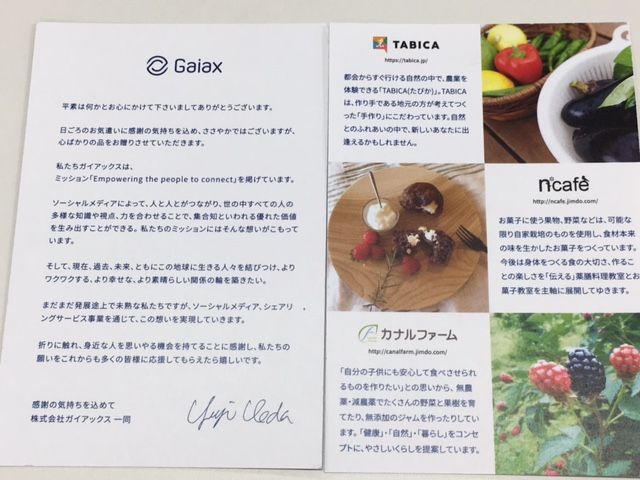 Gaiax
平素は何かとお心にかけて下さいましてありがとうございます。
日ごろのお気遣いに感謝の気持ちを込め、ささやかではございますが、
心ばかりの品をお贈りさせていただきます。
私たちガイアックスは、
ミッション「Empowering the people to connect」を掲げています。
ソーシャルメディアによって、人と人とがつながり、世の中すべての人の
多様な知識や視点、力を合わせることで、集合知といわれる優れた価値
を生み出すことができる。私たちのミッションにはそんな想いがこもって
います。
そして、現在、過去、未来、ともにこの地球に生きる人々を結びつけ、より
ワクワクする、より幸せな、より素晴らしい関係の輪を築きたい。
まだまだ発展途上で未熟な私たちですが、ソーシャルメディア、シェアリ
ングサービス事業を通じて、この想いを実現していきます。
折りに触れ、身近な人を思いやる機会を持てることに感謝し、私たちの
願いをこれからも多くの皆様に応援してもらえたら嬉しいです。
感謝の気持ちを込めて
株式会社ガイアックス 一同
Yuji Ueda
TABICA
https://tabica.jp/
都会からすぐ行ける自然の中で、農業を
体験できる「TABICA(たびか)」。TABICA
は、作り手である地元の方が考えてつくっ
た「手作り」にこだわっています。自然
とのふれあいの中で、新しいあなたに出
逢えるかもしれません。
n°cafe
http://ncafe.jimdo.com/
お菓子に使う果物、野菜などは、可能な
限り自家栽培のものを使用し、食材本来
の味を生かしたお菓子をつくっています。
今後は身体をつくる食の大切さ、作るこ
との楽しさを「伝える」薬膳料理教室とお
菓子教室を主軸に展開してゆきます。
カナルファーム
http://canalfarm.jimdo.com/
「自分の子供にも安心して食べさせられ
るものを作りたい」との思いから、無農
薬・減農薬でたくさんの野菜と果樹を育
てたり、無添加のジャムを作ったりしてい
ます。「健康」・「自然」・「暮らし」をコンセ
プトに、やさしいくらしを提案しています。